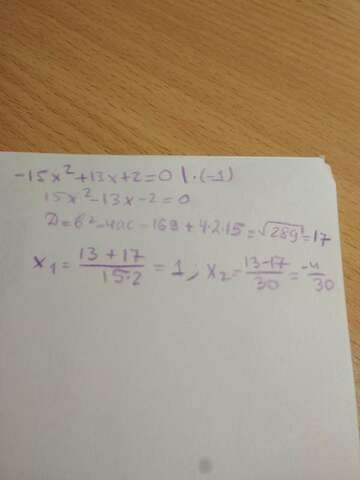 -15x²+13x+2=0 | ·(-1)
15x²-13x-2=0
D=b²-4ac=169+4·2·15=√289=17
x₁=13+17/15·2=1; x₂=13-17/30=-4/30